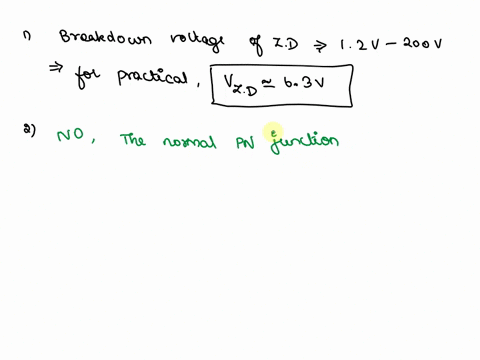 1) Breakdown voltage of Z.D ⇒ 1.2V - 200V
⇒ for practical, V_Z.D ≃ 6.3V
2) NO, The normal PN junction